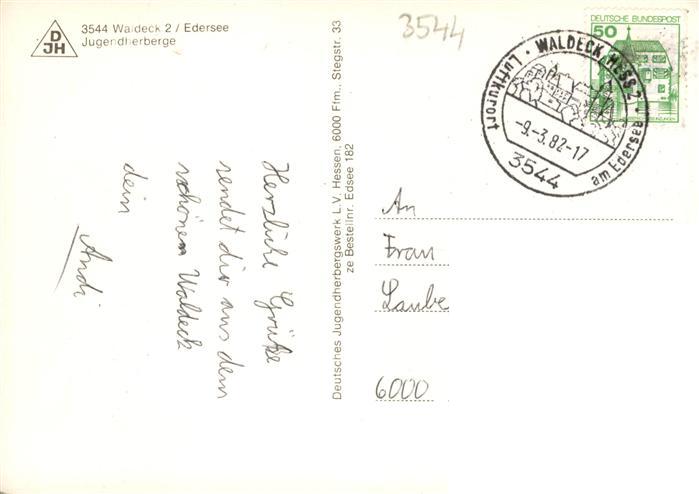 DJH
3544 Waldeck 2 / Edersee
Jugendherberge
Herzliche Grüße
sendet dir aus dem
schönen Waldeck
dein
Andi
Deutsches Jugendherbergswerk L.V. Hessen, 6000 Ffm., Stegstr. 33
ze Bestellnr. Edsee 182
3544
DEUTSCHE BUNDESPOST
50
WALDECK, HESS 2
Luftkurort
am Edersee
-9.-3.82-17
3544
An
Frau
Laube
6000